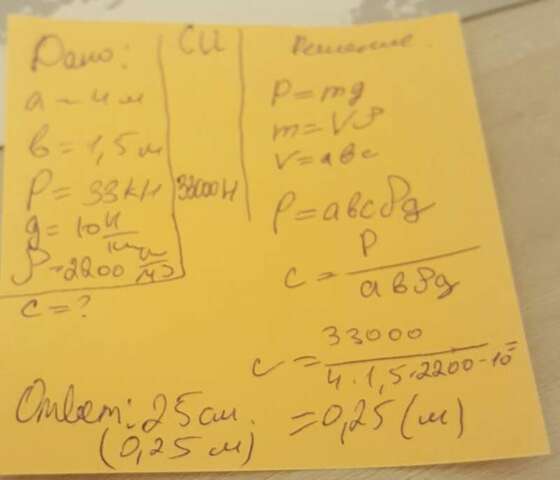 Дано:
a = 4 м
b = 1,5 м
P = 33 кН
g = 10 Н/кг
ρ = 2200 кг/м3
c = ?
СИ
33000 Н
Решение.
P = mg
m = Vρ
V = abc
P = abcρg
c = P / abρg
c = 33000 / 4 · 1,5 · 2200 · 10 =
= 0,25 (м)
Ответ: 25 см.
(0,25 м)